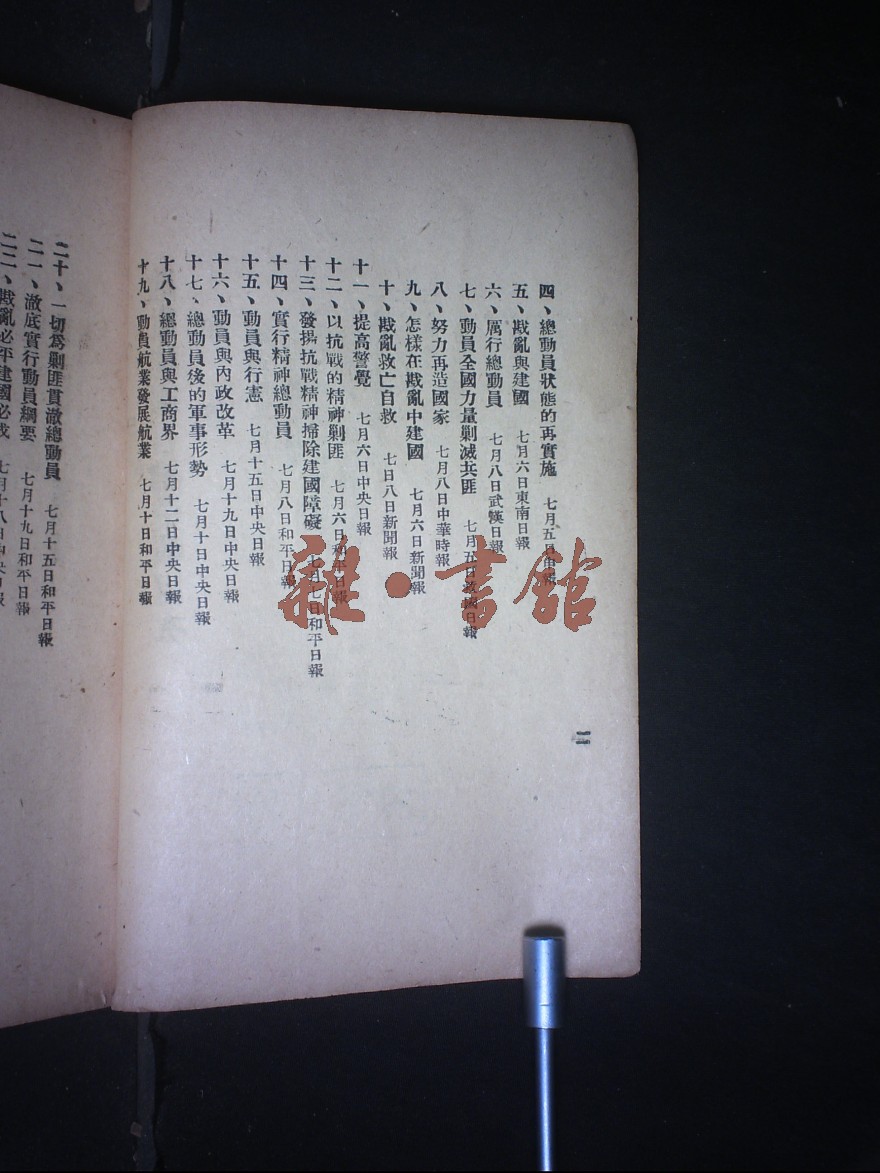 四、總動員狀態的再實施　七月五日申報
五、戡亂與建國　七月六日東南日報
六、厲行總動員　七月八日武漢日報
七、動員全國力量剿滅共匪　七月五日救國日報
八、努力再造國家　七月八日中華時報
九、怎樣在戡亂中建國　七月六日新聞報
十、戡亂救亡自救　七日八日新聞報
十一、提高警覺　七月六日中央日報
十二、以抗戰的精神剿匪　七月六日和平日報
十三、發揚抗戰精神掃除建國障礙　七月七日和平日報
十四、實行精神總動員　七月八日和平日報
十五、動員與行憲　七月十五日中央日報
十六、動員與內政改革　七月十九日中央日報
十七、總動員後的軍事形勢　七月十日中央日報
十八、總動員與工商界　七月十二日中央日報
十九、動員航業發展航業　七月十日和平日報
二
二十、一切為剿匪貫澈總動員　七月十五日和平日報
二一、澈底實行動員綱要　七月十九日和平日報
二二、戡亂必平建國必成　七月十八日中央日報
雜·書館